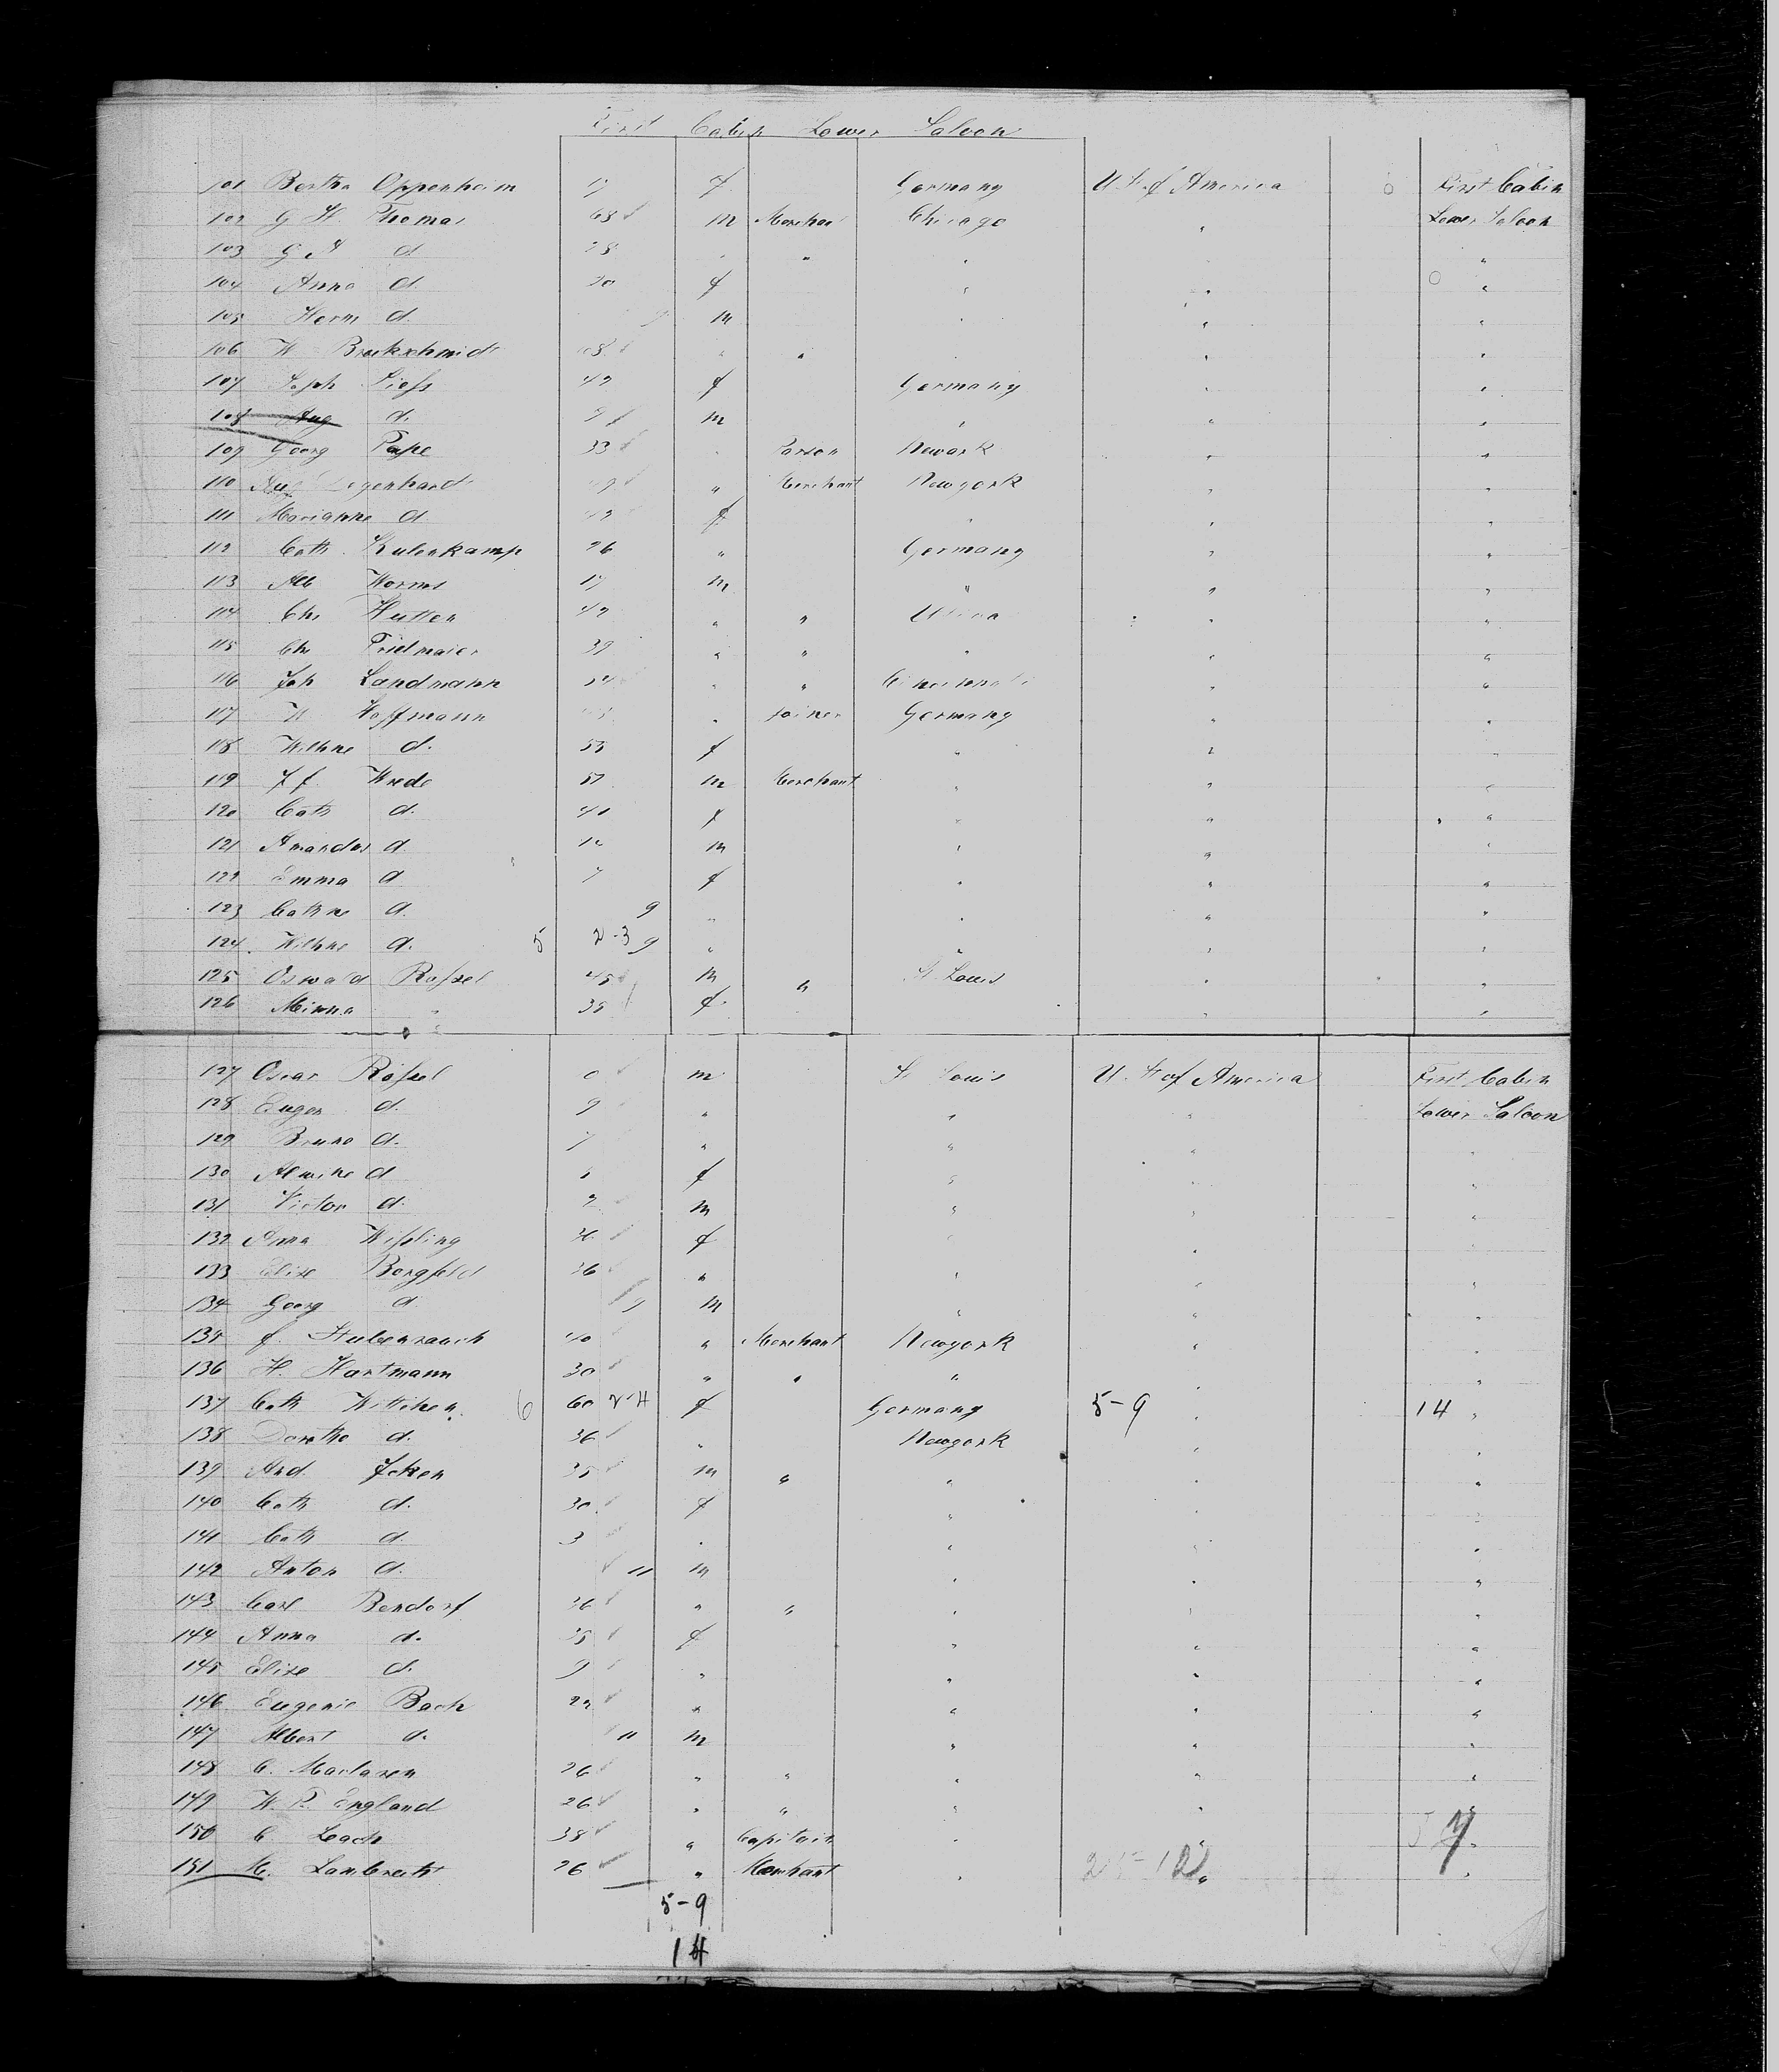 First Cabin Lower Saloon
101 Bertha Oppenheim 19 f Germany U. St. of America 0 First Cabin
102 G H Thomas 63 m Merchant Chicago " Lower Saloon
103 G A d. 28 " " " " "
104 Anna d. 20 f " " 0 "
105 Herm d. 9 m " " "
106 W Brockschmidt " " " " "
107 Soph Siefs 42 f Germany " "
108 Aug d. 9 m " " "
109 Georg Pape 33 " Parson Newark " "
110 Aug genhard " Merchant Newyork " "
111 Marianne d. 42 f " " "
112 Cath. Kulenkamp 26 " Germany " "
113 Alb Worms 17 m " " "
114 Chr Hutten 42 " " Utica " "
115 Chr Fridmaier 39 " " " " "
116 Joh Landmann 54 " " Cincinnati " "
117 W Hoffmann " Joiner Germany " "
118 Wilhne d. 53 f " " "
119 J f. Wrede 51 m Merchant " " "
120 Cath d. 40 f " " "
121 Amandus d. 10 m " " "
122 Emma d 7 f " " "
123 Cathne d. 9 " " " "
124 Wilhne d. 5 2-3 9 " " " "
125 Oswald Rofsel 45 m " St. Louis " "
126 Minna " 38 f " "
127 Oscar Rofsel m St Louis U. St of America First Cabin
128 Eugen d. 9 " " " Lower Saloon
129 Bruno d. 7 " " " "
130 Alwine d f " " "
131 Victor d. 2 m " " "
132 Anna Wifsling 30 f " " "
133 Elise Borgfeld 36 " " " "
134 Georg d 9 m " " "
135 f. Stubenrauch 40 " Merchant Newyork " "
136 H. Hartmann 30 " " " " "
137 Cath Wittchen. 6 60 2-4 f Germany 5-9 " 14 "
138 Dorethe d. 36 " Newyork " "
139 And. Icken 35 m " " " "
140 Cath d. 30 f " " "
141 Cath d. 3 " " " "
142 Anton d. 11 m " " "
143 Carl Bendorf 36 " " " " "
144 Anna d. 35 f " " "
145 Elise d. 9 " " " "
146 Eugenie Bach 22 " " " "
147 Albert d. 11 m " " "
148 C. Maclaren 26 " " " " "
149 W. R. England 26 " " " " "
150 C Leach 38 " Capitain " "
151 C. Lambrecht 26 " Merchant " 25-12 " "
5-9
14